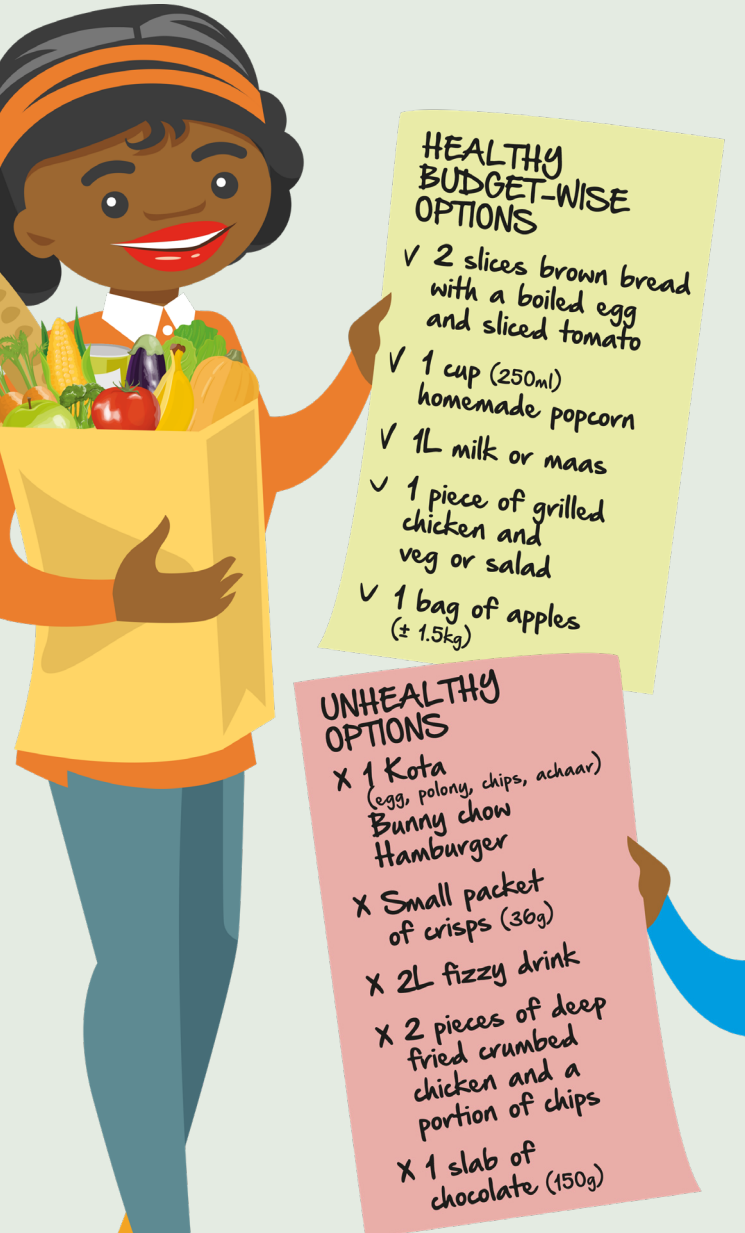 HEALTHY
BUDGET-WISE
OPTIONS
✓ 2 slices brown bread
with a boiled egg
and sliced tomato
✓ 1 cup (250ml)
homemade popcorn
✓ 1L milk or maas
✓ 1 piece of grilled
chicken and
veg or salad
✓ 1 bag of apples
(± 1.5kg)
UNHEALTHY
OPTIONS
X 1 Kota
(egg, polony, chips, achaar)
Bunny chow
Hamburger
X Small packet
of crisps (36g)
X 2L fizzy drink
X 2 pieces of deep
fried crumbed
chicken and a
portion of chips
X 1 slab of
chocolate (150g)